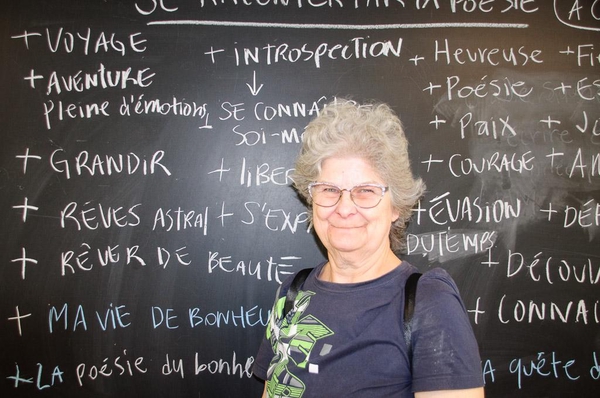 SE RACONTER PAR LA POÉSIE
+ VOYAGE
+ AVENTURE
pleine d'émotions
+ GRANDIR
+ RÊVES ASTRAL
+ RÊVER DE BEAUTÉ
+ MA VIE DE BONHEU
+ LA poésie du bonhe
+ INTROSPECTION
↓
SE CONNAÎTRE
SOI-M
+ LIBER
+ S'EXP
+ Heureuse
+ Poésie
+ PAIX
+ COURAGE
+ ÉVASION
DU TEMPS
+ DÉCOUV
+ CONNAI
A QUÊTE d